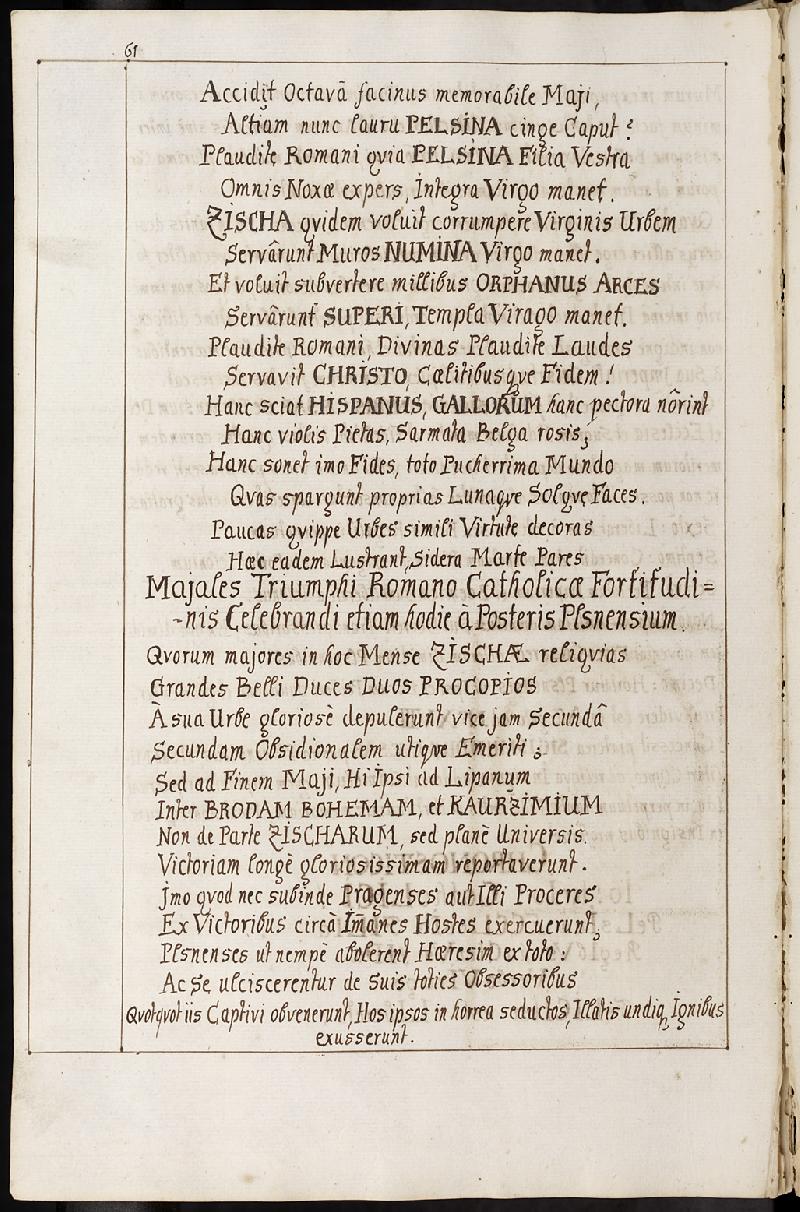 61
Accidit Octavâ facinus memorabile Maji,
Altiam nunc lauru PELSINA cinge Caput!
Plaudite Romani qvia PELSINA Filia Vestra
Omnis Noxæ expers, Integra Virgo manet.
ZISCHA qvidem voluit corrumpere Virginis Urbem
Servârunt Muros NUMINA Virgo manet.
Et voluit subvertere millibus ORPHANUS ARCES
Servârunt SUPERI, Templa Virago manet.
Plaudite Romani, Divinas Plaudite Laudes
Servavit CHRISTO, Cælitibusqve Fidem!
Hanc sciat HISPANUS, GALLORUM hanc pectora nôrint
Hanc violis Pietas, Sarmata Belga rosis;
Hanc sonet imo Fides, toto Pucherrima Mundo
Qvas spargunt proprias Lunaqve Solqve Faces.
Paucas qvippe Urbes simili Virtute decoras
Hæc eadem Lustrant, Sidera Marte Pares
Majales Triumphi Romano Catholicæ Fortitudi=
-nis Celebrandi etiam hodie à Posteris Plsnensium.
Qvorum majores in hoc Mense ZISCHÆ reliqvias
Grandes Belli Duces DUOS PROCOPIOS
À sua Urbe gloriosè depulerunt vice jam Secundâ
Secundam Obsidionalem utiqve Emeriti;
Sed ad Finem Maji, Hi Ipsi ad Lipanum
Inter BRODAM BOHEMAM, et KAURZIMIUM
Non de Parte ZISCHARUM, sed planè Universis
Victoriam longè gloriosissimam reportaverunt.
Jmo qvod nec subinde Pragenses aut Illi Proceres
Ex Victoribus circà Im̄anes Hostes exercuerunt;
Plsnenses ut nempè abolerent Hæresim ex toto:
Ac Se ulciscerentur de suis toties Obsessoribus
Qvotqvot iis Captivi obvenerunt, Hos ipsos in horrea seductos, Illatis undiq, Ignibus
exusserunt.